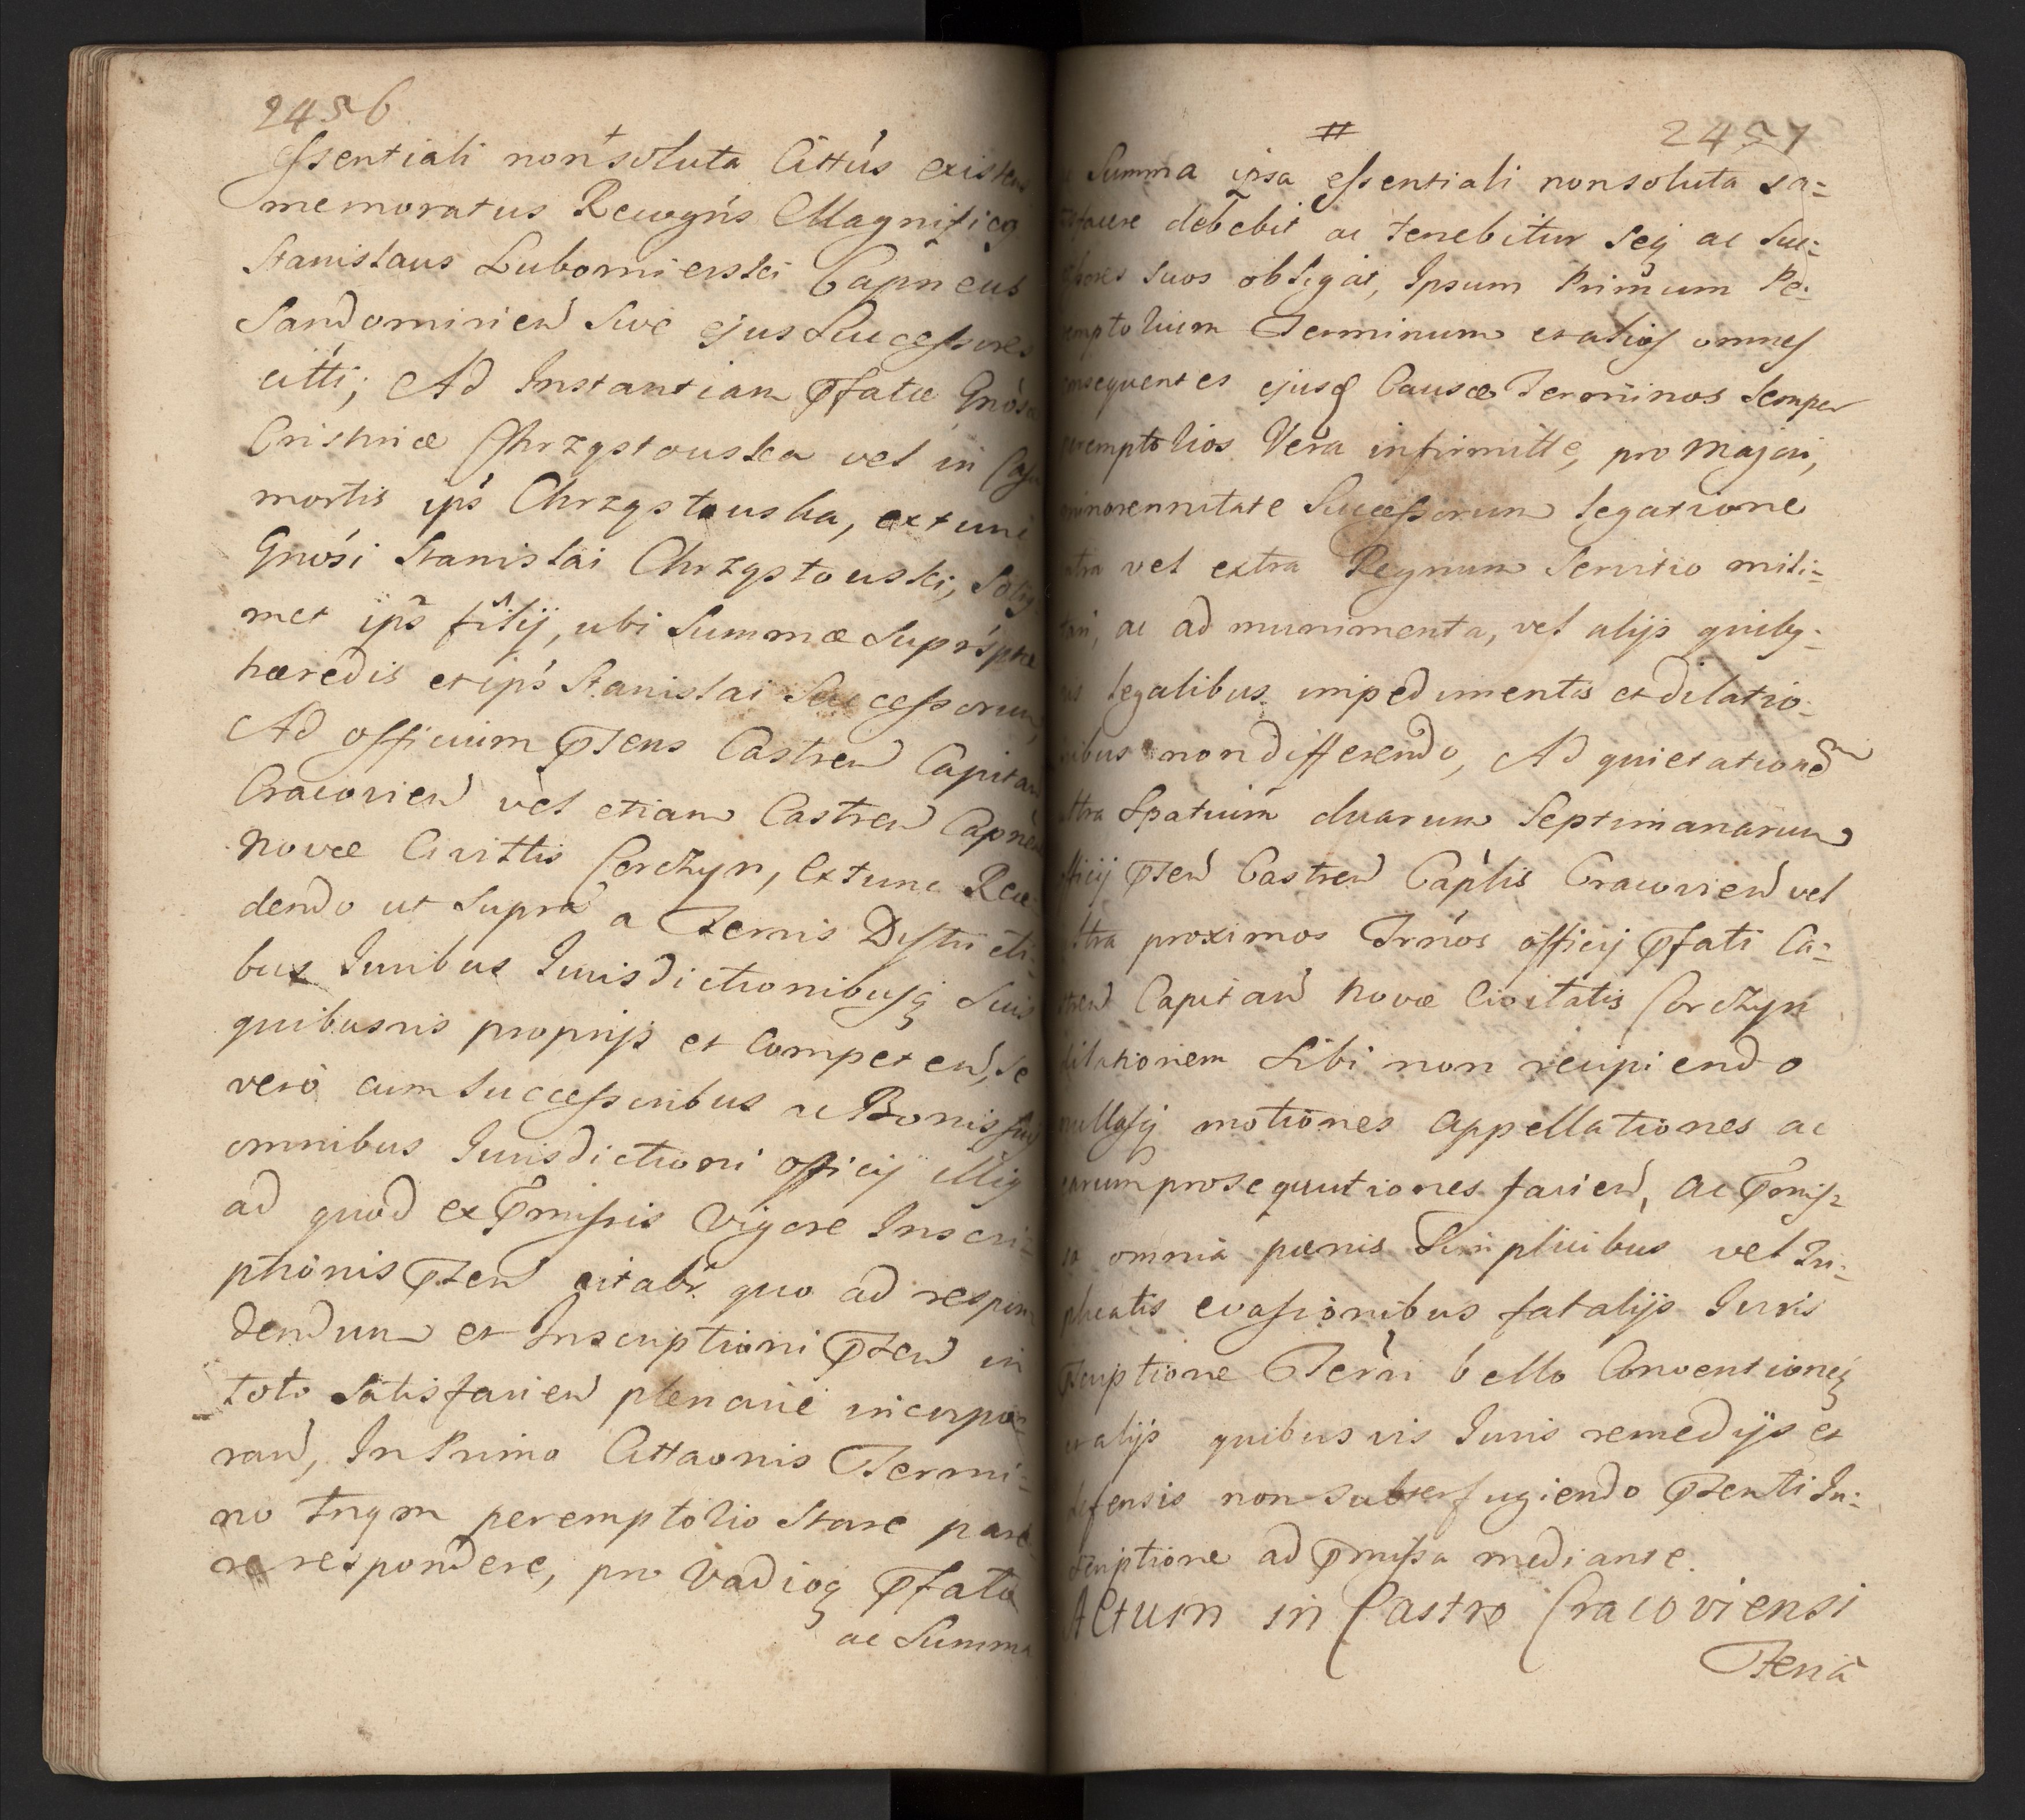 2456
essentiali non soluta Cittus existens
memoratus Recogns Magnificq
Stanislaus Lubomierski Capneus
Sandomirien Sive ejus Successores
citti; Ad Instantiam pfatæ Gnosæ
Cristinæ Chrząstouska vel in Casu
mortis ips Chrząstouska, extunc
Gnosi Stanislai Chrząstouski, Solig
met ips filij, ubi Summæ Suprsptæ
hæredis et ips Stanislai Successorum,
Ad officium ptens Castren Capitan
Cracovien vel etiam Castren Capnen
Novæ Civittis Corczyn, extunc Rece-
dendo ut Supra a Terris Districti-
bus Iuribus Iurisdictionibusq Suis
quibusvis proprijs et Competen, Se
vero cum Successoribus ac Bonis suis
omnibus Iurisdictioni officij illiq
ad quod ex pmissis Vigore Inscri-
ptionis pten citabr quo ad respon-
dendum et Inscriptioni pten in
toto Satisfacien plenarie incorpo-
ran, In Primo Cittaonis Termi-
no tnqm peremptorio Stare pare-
re respondere, pro Vadioq pfato
ac Summa
2457
Summa ipsa essentiali non soluta sa-
tisfacere debebit ac tenebitur Seq ac Suc-
cessores Suos obligat, Ipsum Primum Pe-
remptorium Terminum et alios omnes
consequentes ejusq Causæ Terminos Semper
peremptorios. Vera infirmitte, pro Majori,
minorennitate Successorum legatione
intra vel extra Regnum Servitio mili-
tari, ac ad munimenta, vel alijs quibq-
vis legalibus impedimentis et dilatio-
nibus non differendo, Ad quietationem
ultra Spatium duarum Septimanarum
officij pten Castren Caplis Cracovien vel
ultra proximos Trnos officij pfati Ca-
stren Capitan Novæ Civitatis Corczyn
dilationem Sibi non recipiendo
nullasq motiones appellationes ac
earum prosequutiones facien, ac pmis-
sa omnia pænis Simplicibus vel Tri-
plicatis evasionibus fatalijs Iuris
pscriptione Terri bello Conventioneq
et alijs quibusvis Iuris remedijs et
defensis non Subterfugiendo ptenti In-
scriptione ad pmissa mediante.
Actum in Castro Cracoviensi
Feria